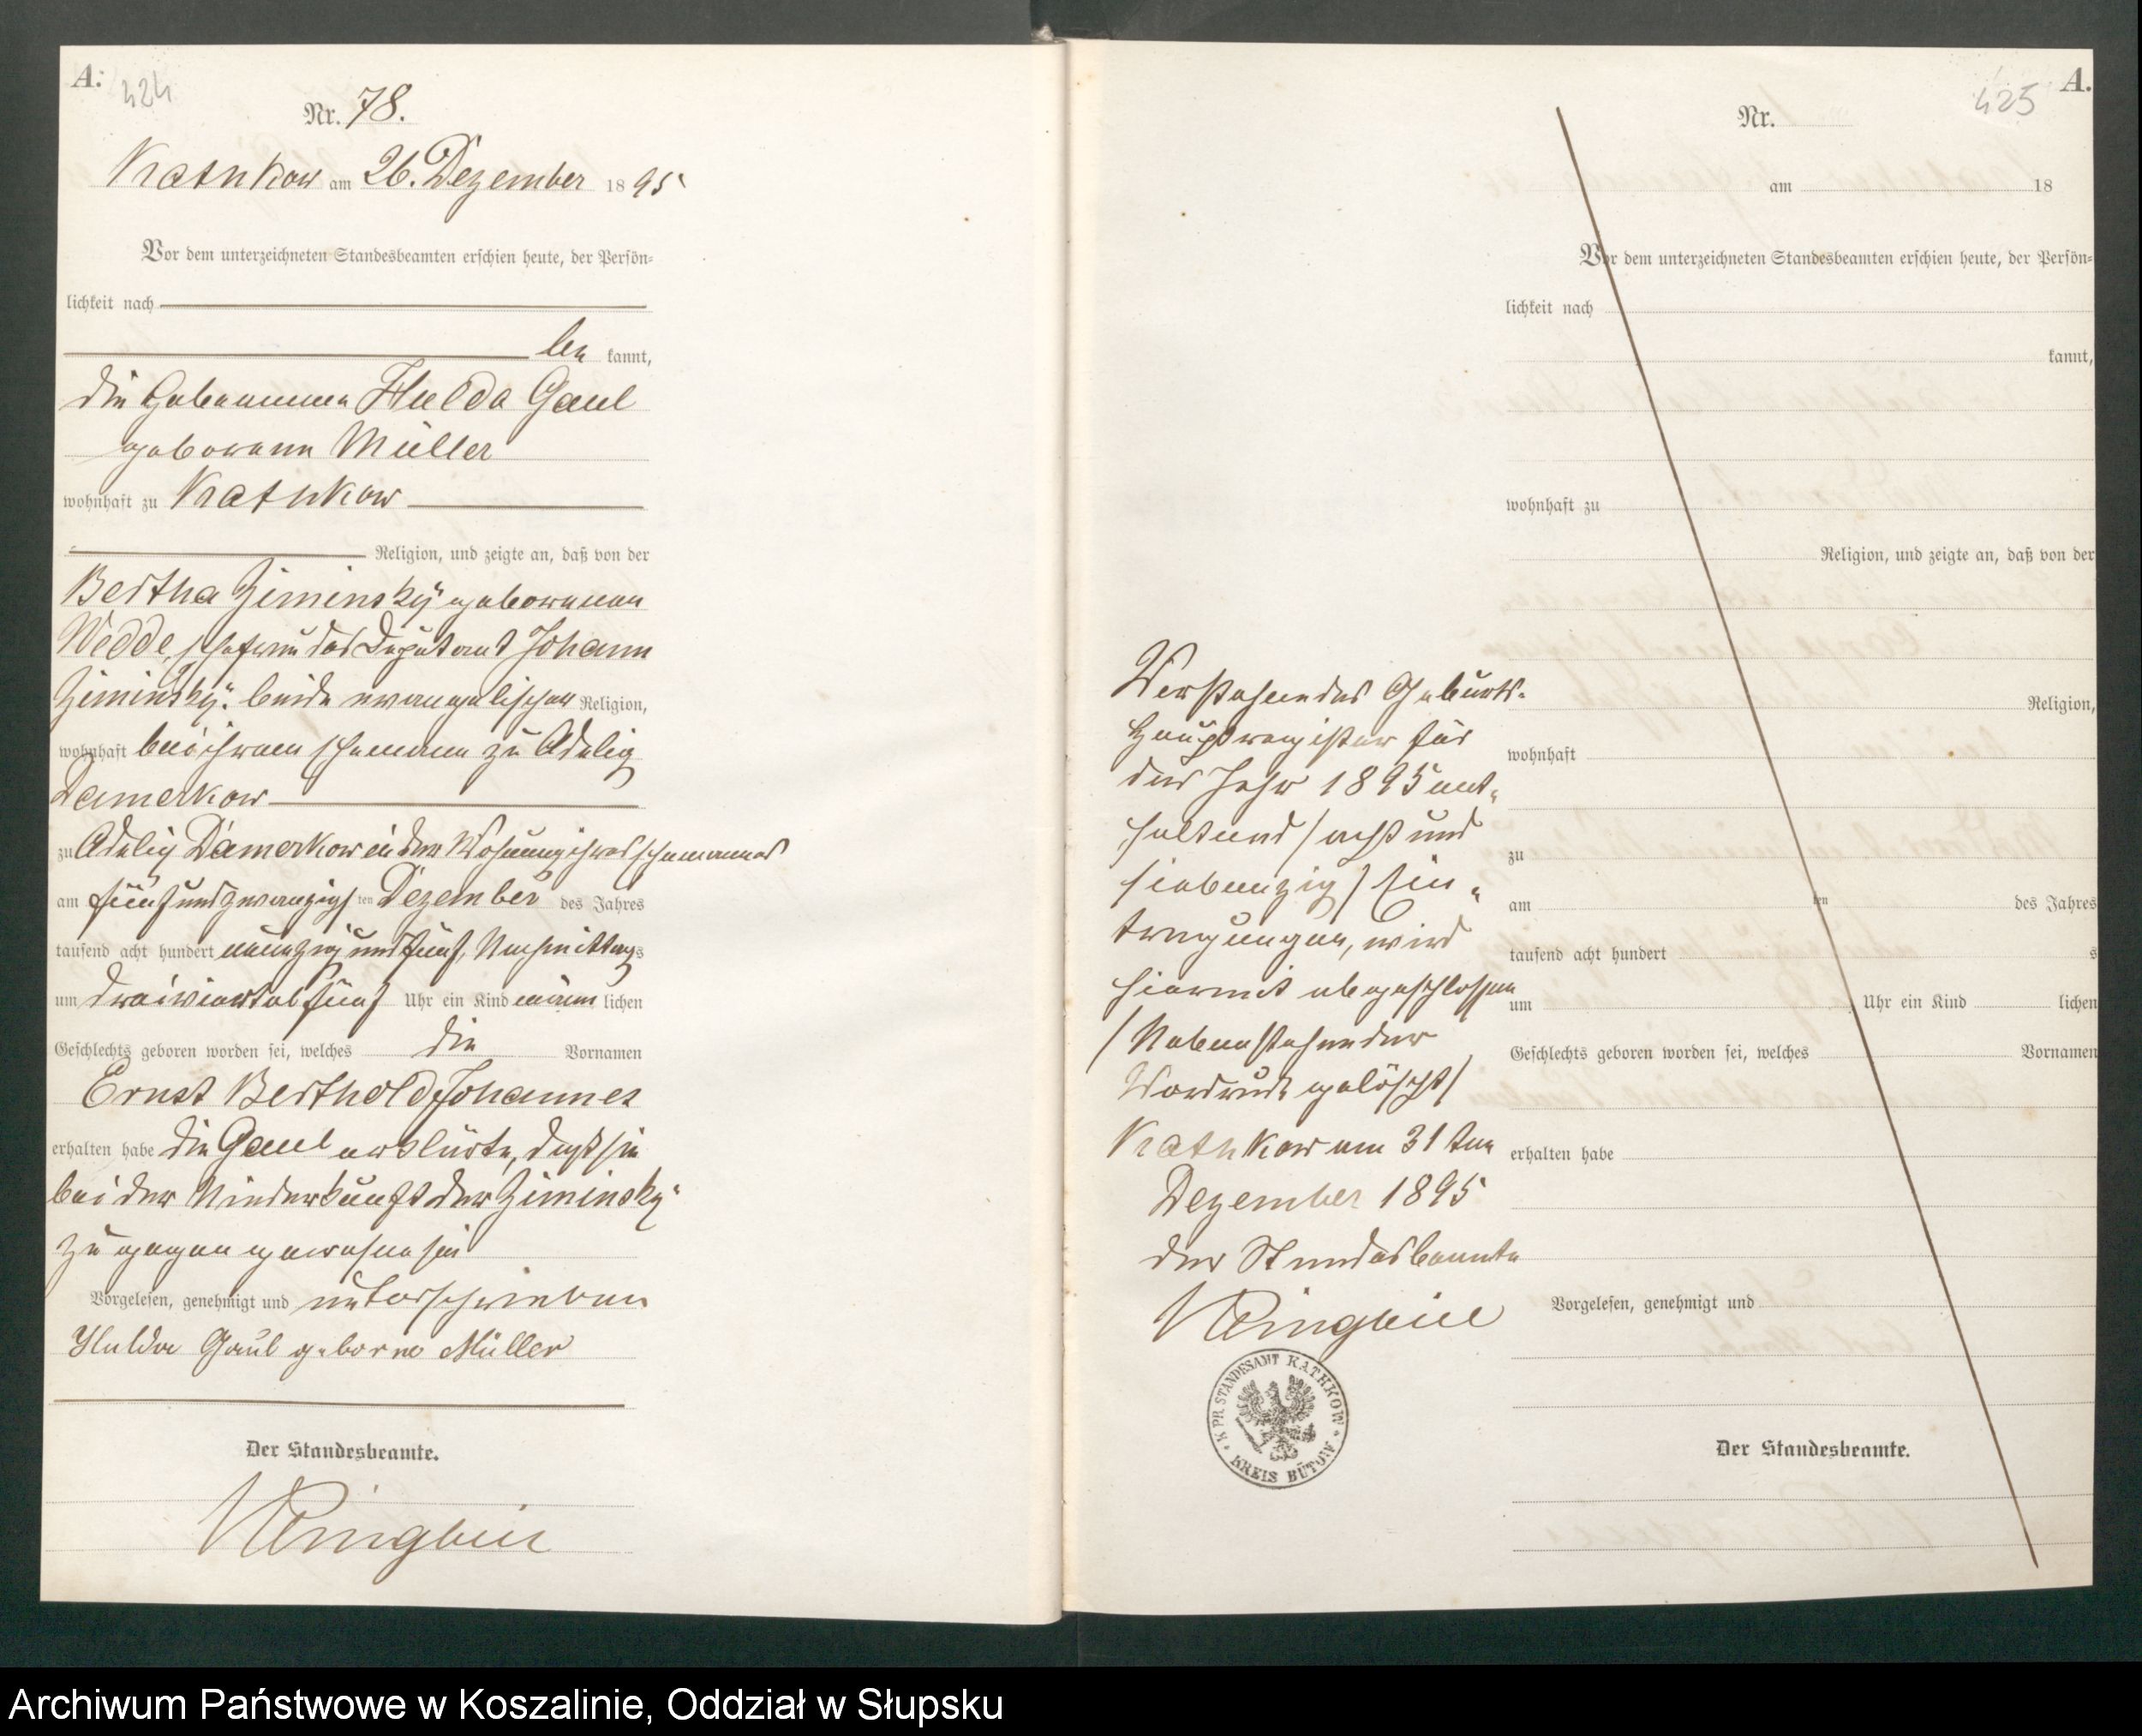 A.
424
Nr. 78.
Kathkow am 26. Dezember 1895
Vor dem unterzeichneten Standesbeamten erschien heute, der Persön-
lichkeit nach
be kannt,
die Hebeamme Hulda Gaul
geborene Müller
wohnhaft zu Kathkow
Religion, und zeigte an, daß von der
Bertha Ziminsky geborenen
Wedde, Ehefrau des Deputant Johann
Ziminsky, beide evangelischer Religion,
wohnhaft bei ihrem Ehemann zu Adelig
Damerkow
zu Adelig Damerkow in der Wohnung ihres Ehemannes
am fünfundzwanzigs ten Dezember des Jahres
tausend acht hundert neunzig und fünf, Nachmittags
um dreiviertelfünf Uhr ein Kind männ lichen
Geschlechts geboren worden sei, welches die Vornamen
Ernst Berthold Johannes
erhalten habe die Gaul erklärte, daß sie
bei der Niederkunft der Ziminsky
zugegen gewesen sei
Vorgelesen, genehmigt und unterschrieben
Hulda Gaul geborne Müller
Der Standesbeamte.
A.
425
Nr.
am 18
Vor dem unterzeichneten Standesbeamten erschien heute, der Persön-
lichkeit nach
kannt,
wohnhaft zu
Religion, und zeigte an, daß von der
Religion,
wohnhaft
zu
am ten des Jahres
tausend acht hundert s
um Uhr ein Kind lichen
Geschlechts geboren worden sei, welches Vornamen
erhalten habe
Vorgelesen, genehmigt und
Der Standesbeamte.
Vorstehendes Geburts-
Hauptregister für
das Jahr 1895 ent-
haltend /acht und
siebenzig/ Ein-
tragungen, wird
hiermit abgeschlossen
/Nebenstehender
Vordruck gelöscht/
Kathkow am 31 ten
Dezember 1895
der Standesbeamte
K. PR. STANDESAMT KATHKOW
KREIS BÜTOW
Archiwum Państwowe w Koszalinie, Oddział w Słupsku